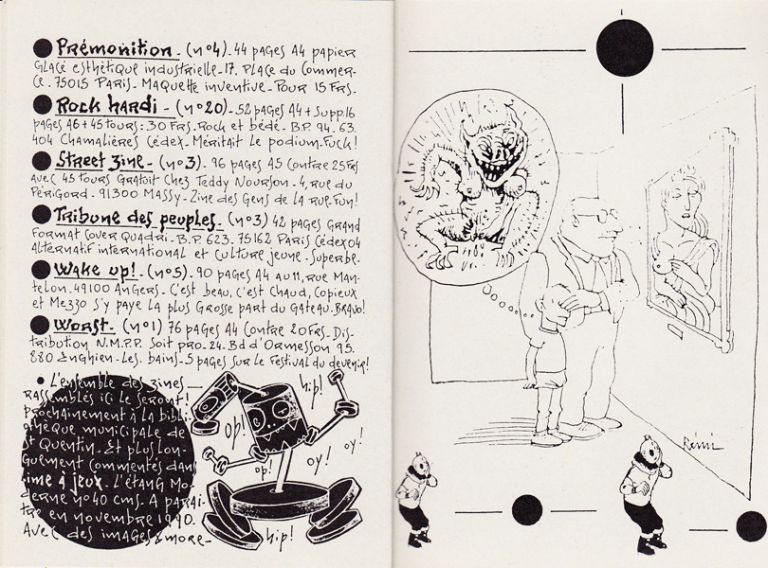 Prémonition - (n°4). 44 pages A4 papier
Glacé esthétique industrielle - 17, Place du Commer-
ce. 75015 PARIS - Maquette inventive - Pour 15 Frs.
Rock hardi - (n°20) - 52 pages A4 + Supp. 16
pages A6 + 45 tours: 30 Frs. Rock et bédé. B.P. 94. 63
404 Chamalières Cédex. Méritait le podium. Fuck!
Street zine - (n°3). 96 pages A5 contre 25 Frs
avec 45 tours Gratuit chez Teddy Nourson - 4, rue du
Périgord. 91300 MASSY - Zine des Gens de la rue. Fun!
Tribune des peuples. (n°3) 42 pages Grand
Format cover Quadri. B.P. 623. 75162 Paris Cédex 04
Alternatif international et culture jeune. Superbe.
Wake up! - (n°5). 90 pages A4 au 11, rue Man-
telon. 49100 Angers. C'est beau, c'est chaud, copieux
et Me330 s'y paye la plus Grosse part du Gateau. BRAVO!
Worst - (n°1) 76 pages A4 Contre 20 Frs. Dis-
tribution N.M.P.P. Soit pro. 24. Bd d'Ormesson 95.
880 Enghien. Les. bains - 5 pages sur le Festival du devenir!
L'ensemble des zines
rassemblés ici le seront!
prochainement à la bibli-
othèque municipale de
St Quentin. Et plus lon-
guement commentés dans
ime à jeux. L'étang Mo-
derne n°40 cms. A parai-
tre en novembre 1990.
Avec des images & more -
hip!
op!
oy!
op!
oy!
hip!
Rémi